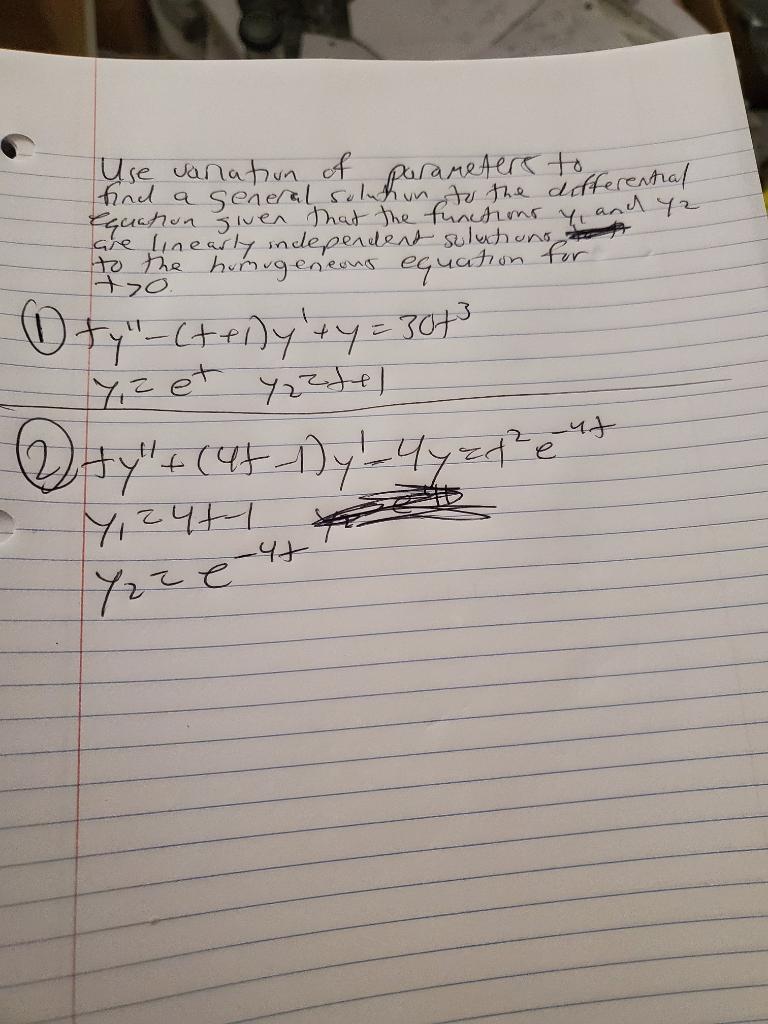 Use variation of parameters to
find a general solution to the differential
equation given that the functions y₁ and y₂
are linearly independent solutions
to the homogeneous equation for
t>0.
① ty"-(t+1)y'+y=30t³
y₁=e^t y₂=t+1
② ty"+(4t-1)y'-4y=t²e^-4t
y₁=4t-1
y₂=e^-4t